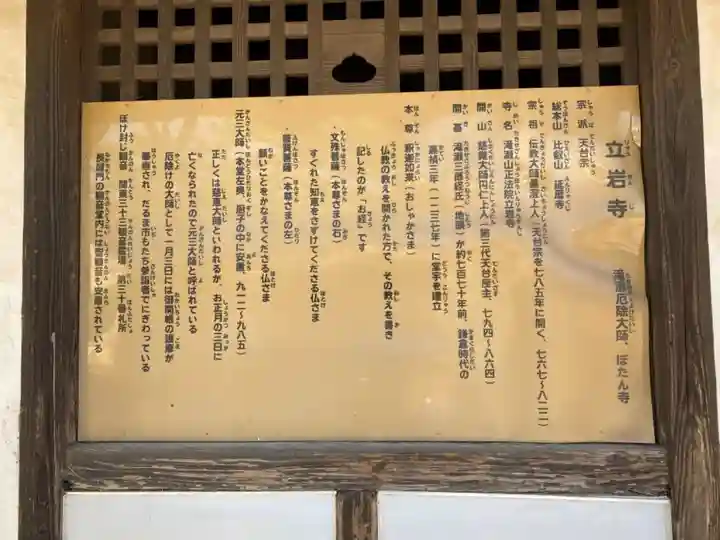 立岩寺 滝瀬厄除大師、ぼたん寺
宗派 天台宗
総本山 比叡山 延暦寺
宗祖 伝教大師最澄上人(天台宗を七八五年に開く、七六七~八二二)
寺名 滝瀬山正法院立岩寺
開山 慈覚大師円仁上人(第三代天台座主、七九四~八六四)
開基 滝瀬三郎経氏(地頭)が約七百七十年前、鎌倉時代の
嘉禎三年(一二三七年)に堂宇を建立
本尊 釈迦如来(おしゃかさま)
仏教の教えを開かれた方で、その教えを書き
記したのが「お経」です
・文殊菩薩(本尊さまの右)
すぐれた知恵をさずけてくださる仏さま
・普賢菩薩(本尊さまの左)
願いごとをかなえてくださる仏さま
元三大師(本堂左奥、厨子の中に安置、九一二~九八五)
正しくは慈恵大師といわれるが、お正月の三日に
亡くなられたので元三大師と呼ばれている
厄除けの大師として一月三日には御開帳の護摩が
奉修され、だるま市もたち参詣者でにぎわっている
ぼけ封じ観音 関東三十三観音霊場 第三十番札所
長屋門の観音堂内には
観音も安置されている